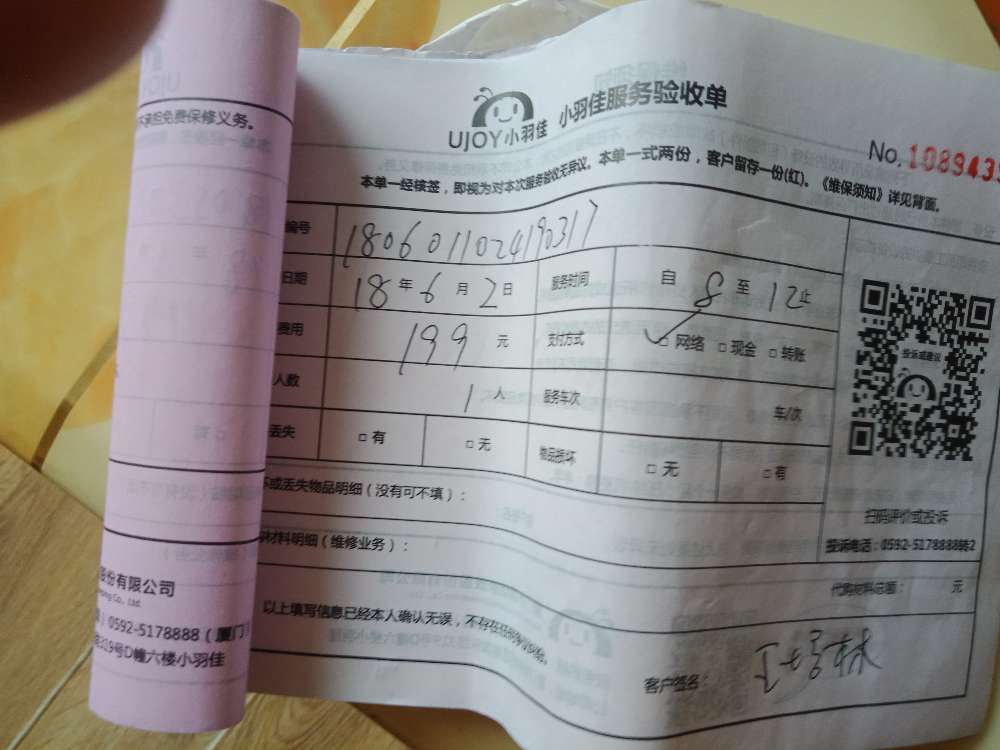 UJOY
不承担免费保修义务。
股份有限公司
Co., Ltd
：0592-5178888（厦门）
319号D幢六楼小羽佳
UJOY小羽佳 小羽佳服务验收单
No. 1089435
本单一经核签，即视为对本次服务验收无异议。本单一式两份，客户留存一份(红)。《维保须知》详见背面。
编号 1806011024190317
日期 18年6月2日 服务时间 自8至12止
费用 199元 支付方式 ☑网络 □现金 □转账
人数 1人 服务车次 车/次
丢失 □有 □无 物品损坏 □无 □有
投诉或建议
扫码评价或投诉
投诉电话：0592-5178888转2
坏或丢失物品明细（没有可不填）：
材料明细（维修业务）：
代购材料总额： 元
以上填写信息已经本人确认无误，不存在任何争议纠纷。
客户签名：